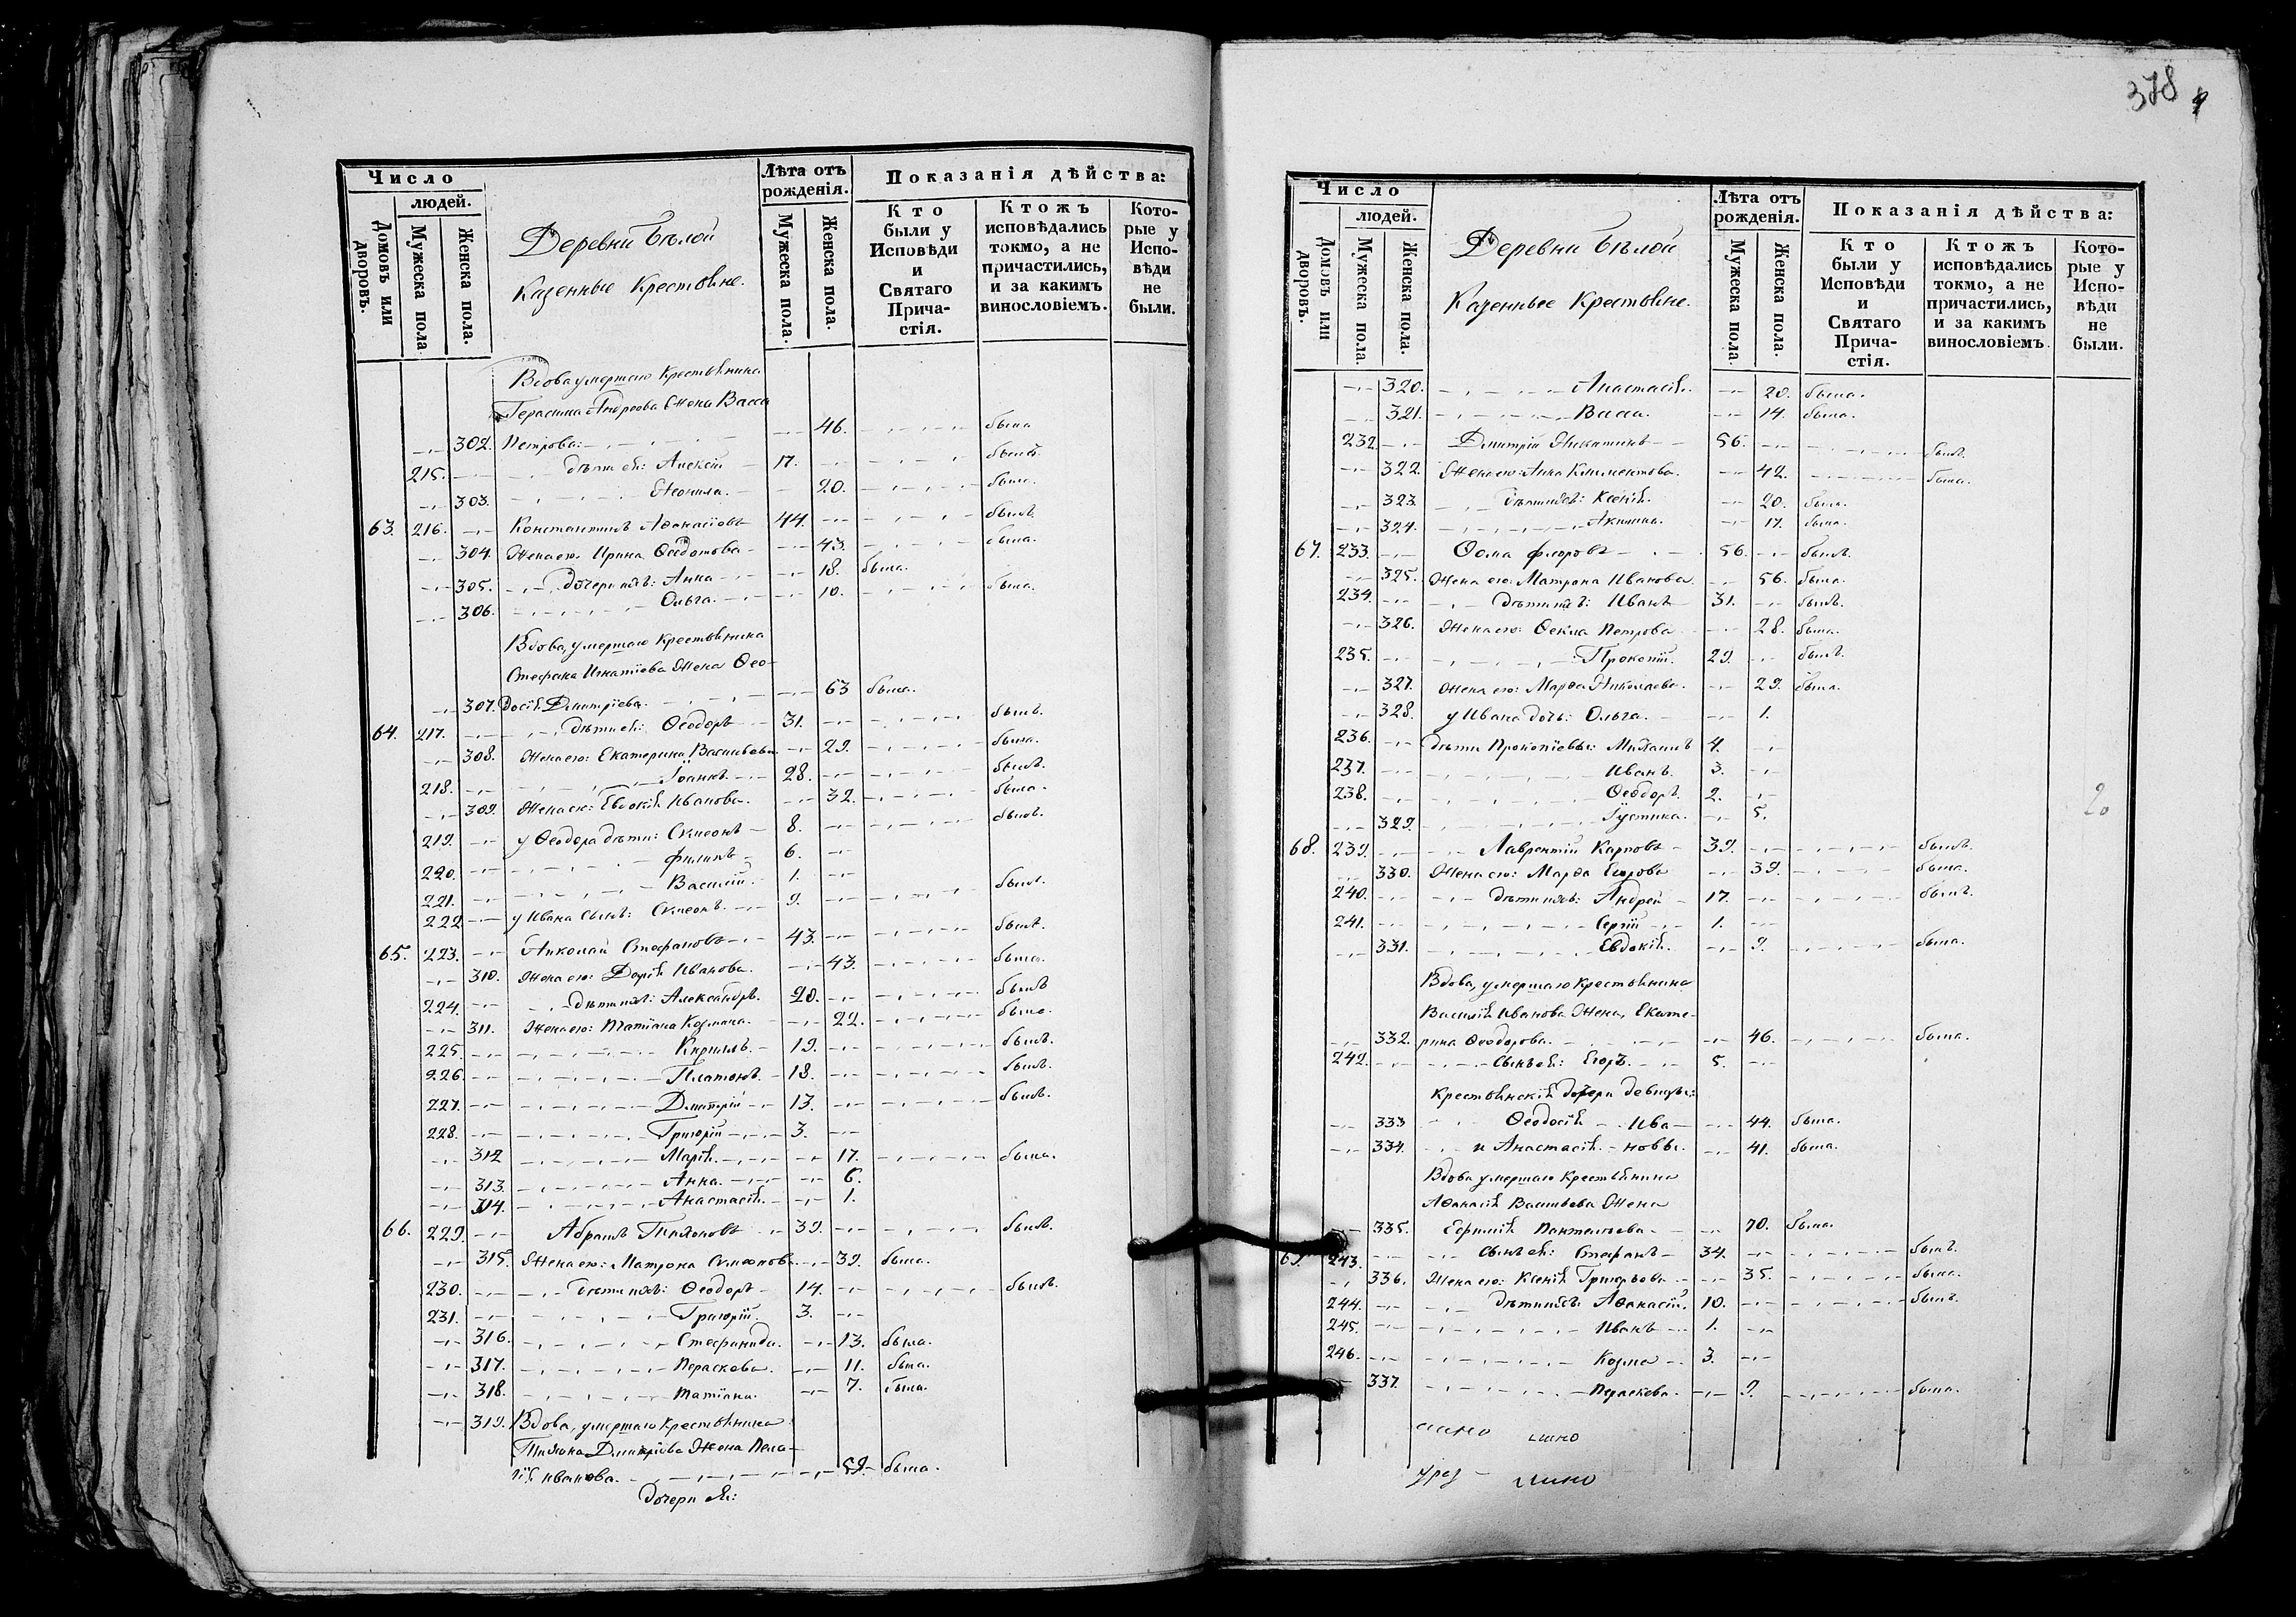 Число
людей.
Домовъ или дворовъ.
Мужеска пола
Женска пола.
Деревни Бѣлой
Казенные Крестьяне.
Лѣта отъ рожденія.
Мужеска пола.
Женска пола.
Показанія дѣйства:
Кто были у Исповѣди и Святаго Прича-стія.
Ктожъ исповѣдались токмо, а не причастились, и за какимъ винословіемъ.
Кото-рые у Испо-вѣди не были.
Вдова умершаго Крестьянина
Герасима Андреева Жена Васса
302. Петрова: 46. была
215. дѣти ея: Алексій 17. былъ.
303. Неонила. 20. была.
63. 216. Константинъ Аѳанасіевъ 44. былъ.
304. Жена его. Ирина Ѳедотова 43. была.
305. Дочери ихъ: Анна 18. была.
306. Ольга. 10. была.
Вдова, умершаго Крестьянина
Стефана Игнатіева Жена Ѳео-
307. досія Димитріева. 63 была.
64. 217. дѣти ея: Ѳеодоръ 31. былъ.
308. Жена его: Екатерина Васильева 29. была.
218. Іоаннъ 28. былъ.
309. Жена его: Евдокія Иванова. 32. была.
219. у Ѳеодора дѣти: Симеонъ 8. былъ.
220. Филипъ 6.
221. Василій 1.
222 у Ивана сынъ: Симеонъ. 9. былъ.
65. 223. Николай Стефановъ 43. былъ.
310. Жена его: Дарія Иванова. 43. была.
224. дѣти ихъ: Александръ. 20. былъ
311. Жена его: Татіана Козмина. 22. была.
225. Кириллъ. 19. былъ.
226. Платонъ. 18. былъ.
227. Димитрій 13. былъ.
228. Григорій 3.
312 Марія. 17. была.
313. Анна. 6.
314. Анастасія. 1.
66. 229. Абрамъ Тихоновъ 39. былъ.
315. Жена его: Матрона Симеонова 39. была.
230. дѣти ихъ: Ѳеодоръ 14. былъ.
231. Григорій. 3.
316. Стефанида. 13. была.
317. Параскева. 11. была.
318. Татіана. 7. была.
319. Вдова, умершаго Крестьянина
Тихона Димитріева Жена Пела-
гія Иванова. 59. была.
дочери ея:
378
Число
людей.
Домовъ или дворовъ.
Мужеска пола.
Женска пола.
Деревни Бѣлой
Казенные Крестьяне.
Лѣта отъ рожденія.
Мужеска пола.
Женска пола.
Показанія дѣйства:
Кто были у Исповѣди и Святаго Прича-стія.
Ктожъ исповѣдались токмо, а не причастились, и за какимъ винословіемъ.
Кото-рые у Испо-вѣди не были.
320. Анастасія. 20. была.
321. Васса. 14. была.
232. Димитрій Никитинъ 56. былъ.
322. Жена его: Анна Климентова. 42. была.
323. дѣти ихъ: Ксенія. 20. была.
324. Акилина. 17. была.
67. 233. Ѳома Флоровъ 56. былъ.
325. Жена его: Матрона Иванова. 56. была.
234. дѣти ихъ: Иванъ 31. былъ.
326. Жена его: Ѳекла Петрова 28. была.
235. Прокопій. 29. былъ.
327. Жена его: Марѳа Николаева. 29. была.
328. у Ивана дочь: Ольга. 1.
236. дѣти Прокопіевы: Михаилъ 4.
237. Иванъ. 3.
238. Ѳеодоръ. 2.
329. Іустина. 5.
68. 239. Лаврентій Карповъ 39. былъ.
330. Жена его: Марѳа Егорова 39. была.
240. дѣти ихъ: Андрей 17. былъ.
241. Сергій 1.
331. Евдокія. 9. была.
Вдова, умершаго Крестьянина
Василія Иванова Жена, Екате-
332. рина Ѳеодорова. 46. была.
242. Сынъ ея: Егоръ. 5.
Крестьянскія дочери девицы:
333 Ѳеодосія Ива- 44. была.
334. и Анастасія. -новы. 41. была.
Вдова умершаго Крестьянина
Аѳанасія Васильева Жена
335. Ефимія Пантелѣева. 70. была.
69. 243. Сынъ ея: Стефанъ 34. былъ.
336. Жена его: Ксенія Григорьева 35. была.
244. дѣти ихъ: Аѳанасій. 10. былъ.
245. Иванъ 1.
246. Козма 3.
337. Параскева. 9. была.
20